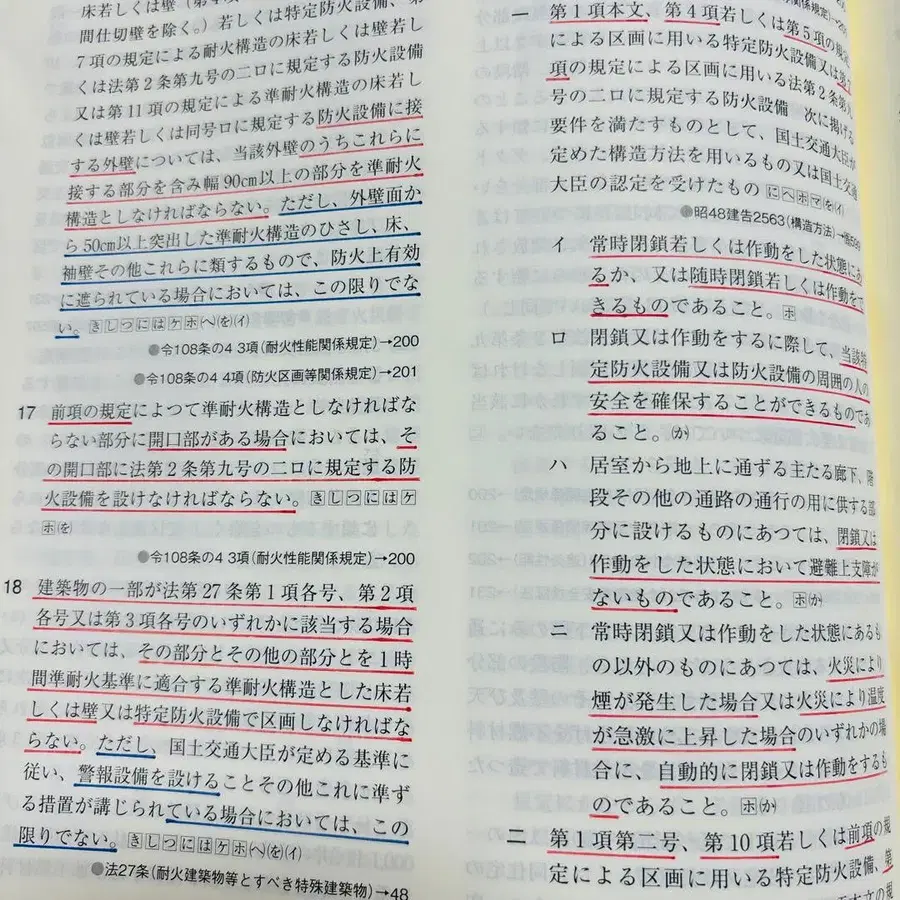 床若しくは壁
間仕切壁を除く。）若しくは特定防火設備、第
7項の規定による耐火構造の床若しくは壁若し
くは法第2条第九号の二ロに規定する防火設備
又は第11項の規定による準耐火構造の床若し
くは壁若しくは同号ロに規定する防火設備に接
する外壁については、当該外壁のうちこれらに
接する部分を含み幅90cm以上の部分を準耐火
構造としなければならない。ただし、外壁面か
ら50cm以上突出した準耐火構造のひさし、床、
袖壁その他これらに類するもので、防火上有効
に遮られている場合においては、この限りでな
い。きしつにはケホ(ヘ)を(イ)
●令108条の4 3項(耐火性能関係規定)→200
●令108条の4 4項(防火区画等関係規定)→201
17 前項の規定によつて準耐火構造としなければな
らない部分に開口部がある場合においては、そ
の開口部に法第2条第九号の二ロに規定する防
火設備を設けなければならない。きしつにはケ
ホを
●令108条の4 3項(耐火性能関係規定)→200
18 建築物の一部が法第27条第1項各号、第2項
各号又は第3項各号のいずれかに該当する場合
においては、その部分とその他の部分とを1時
間準耐火基準に適合する準耐火構造とした床若
しくは壁又は特定防火設備で区画しなければな
らない。ただし、国土交通大臣が定める基準に
従い、警報設備を設けることその他これに準ず
る措置が講じられている場合においては、この
限りでない。きしつにはケホ(ヘ)を(イ)
●法27条(耐火建築物等とすべき特殊建築物)→48
一 第1項本文、第4項若しくは第5項の規定
による区画に用いる特定防火設備又は
項の規定による区画に用いる法第2条第九
号の二ロに規定する防火設備 次に掲げる
要件を満たすものとして、国土交通大臣が
定めた構造方法を用いるもの又は国土交通
大臣の認定を受けたもの にヘホマを(イ)
●昭48建告2563(構造方法)→
イ 常時閉鎖若しくは作動をした状態にあ
るか、又は随時閉鎖若しくは作動をで
きるものであること。ホ
ロ 閉鎖又は作動をするに際して、当該特
定防火設備又は防火設備の周囲の人の
安全を確保することができるものであ
ること。(か)
ハ 居室から地上に通ずる主たる廊下、階
段その他の通路の通行の用に供する部
分に設けるものにあつては、閉鎖又は
作動をした状態において避難上支障が
ないものであること。ホ(か)
ニ 常時閉鎖又は作動をした状態にあるも
の以外のものにあつては、火災により
煙が発生した場合又は火災により温度
が急激に上昇した場合のいずれかの場
合に、自動的に閉鎖又は作動をするも
のであること。ホ(か)
二 第1項第二号、第10項若しくは前項の規
定による区画に用いる特定防火設備、第